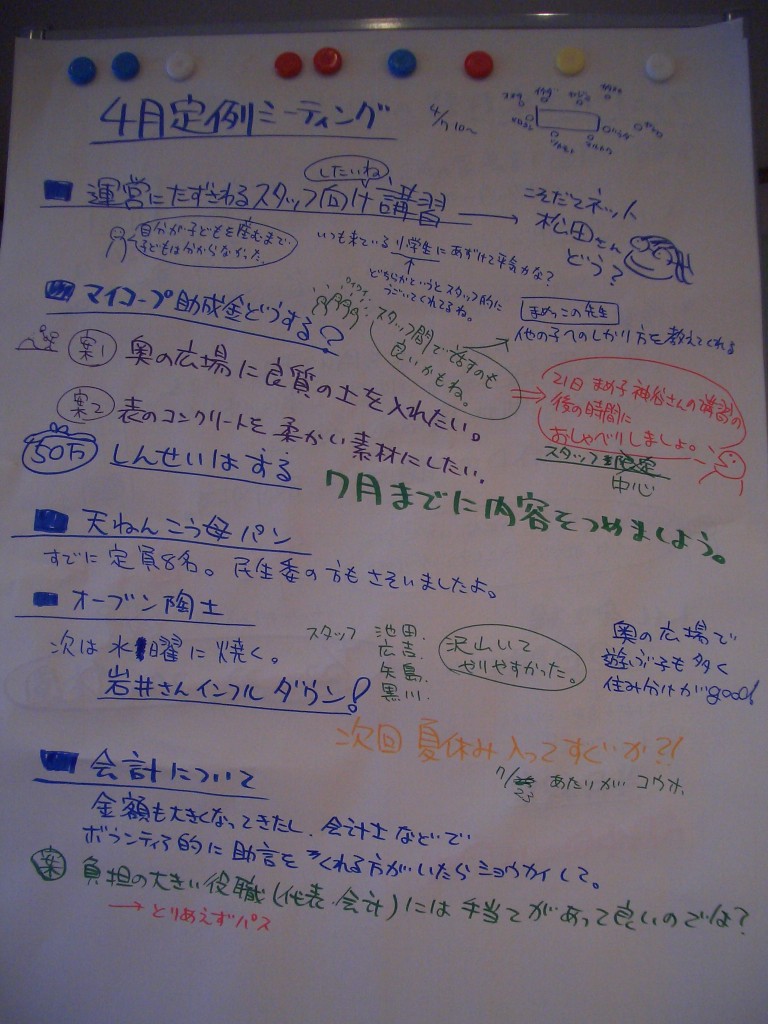 4月定例ミーティング
4/7 10~
したいね
運営にたずさわるスタッフ向け講習 → こそだてネット
松田さん
どう?
自分が子どもを産むまで
子どもは分からなかった。
いつも来ている小学生にあずけて平気かな?
どちらかというとスタッフ的に
うごいてくれてるね。
マイコープ助成金どうする?
ワイワイ
スタッフ間で話すのも
良いかもね。
まめっこの先生
他の子へのしかり方を教えてくれる
案1 奥の広場に良質の土を入れたい。
21日 まめ子 神谷さんの講習の
後の時間に
おしゃべりしましょ。
スタッフ
中心
案2 表のコンクリートを柔かい素材にしたい。
50万 しんせいはする
7月までに内容をつめましょう。
天ねんこう母パン
すでに定員8名。民生委の方もさそいましたよ。
オーブン陶土
次は水曜に焼く。
岩井さんインフルダウン!
スタッフ 池田.
広吉.
矢島.
黒川.
沢山いて
やりやすかった。
奥の広場で
遊ぶ子も多く
住み分けがgood!
次回 夏休み入ってすぐいか?!
7/23 あたりが コウホ.
会計について
金額も大きくなってきたし、会計士などで
ボランティア的に助言をくれる方がいたらショウカイして。
案 負担の大きい役職(代表・会計)には手当てがあって良いのでは?
→とりあえずパス